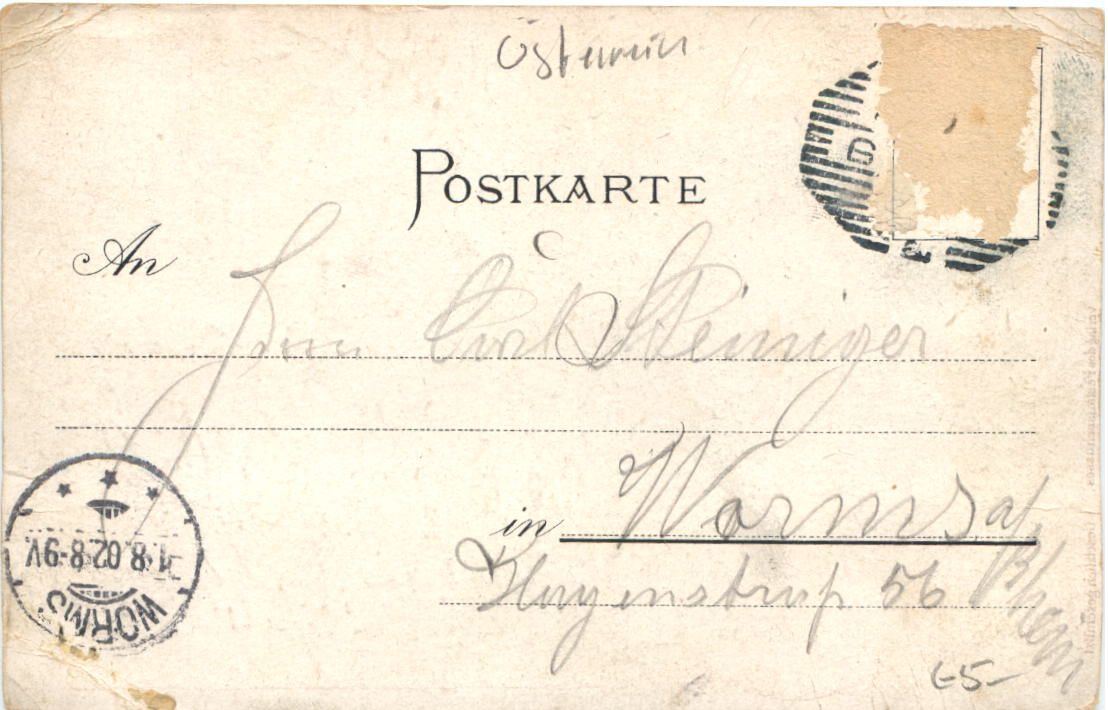 Österreich
POSTKARTE
An
Herrn Carl Steiniger
in Worms a/
Rhein
Hagenstraße 56
WORMS
1.8.02.8-9V.
€5-